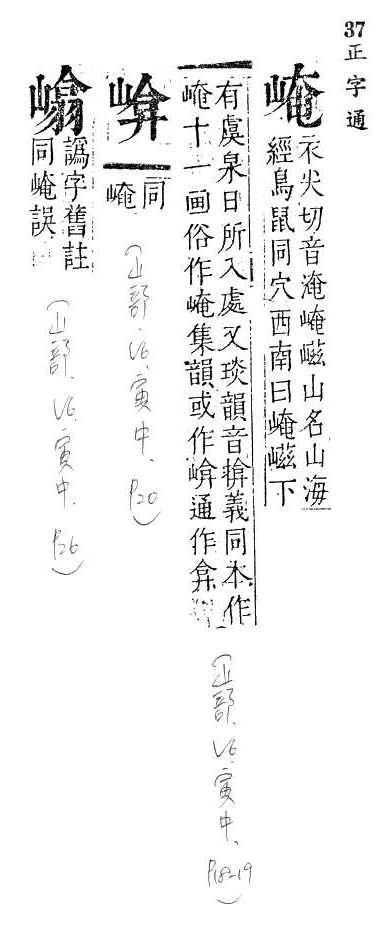 37
正字通
崦
衣尖切音淹崦嵫山名山海
經鳥鼠同穴西南曰崦嵫下
有虞泉日所入處又琰韻音揜義同本作
崦十一画俗作崦集韻或作㟞通作弇
(山部, 16, 寅中, P18-19)
㟞
同
崦
(山部, 16, 寅中, P20)
譌字舊註
同崦誤
(山部, 16, 寅中, P26)